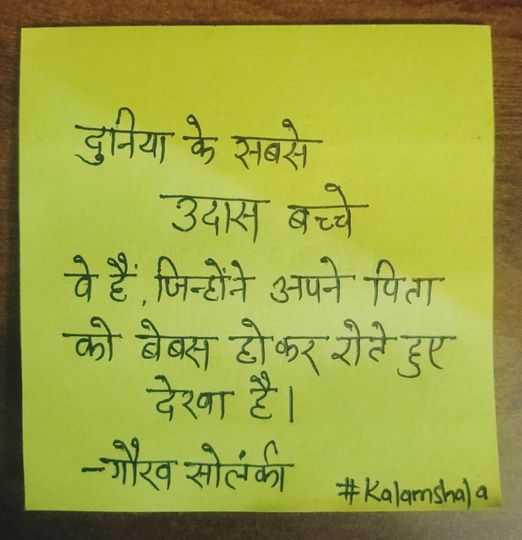 दुनिया के सबसे
उदास बच्चे
वे हैं, जिन्होंने अपने पिता
को बेबस होकर रोते हुए
देखा है।
-गौरव सोलंकी
#Kalamshala